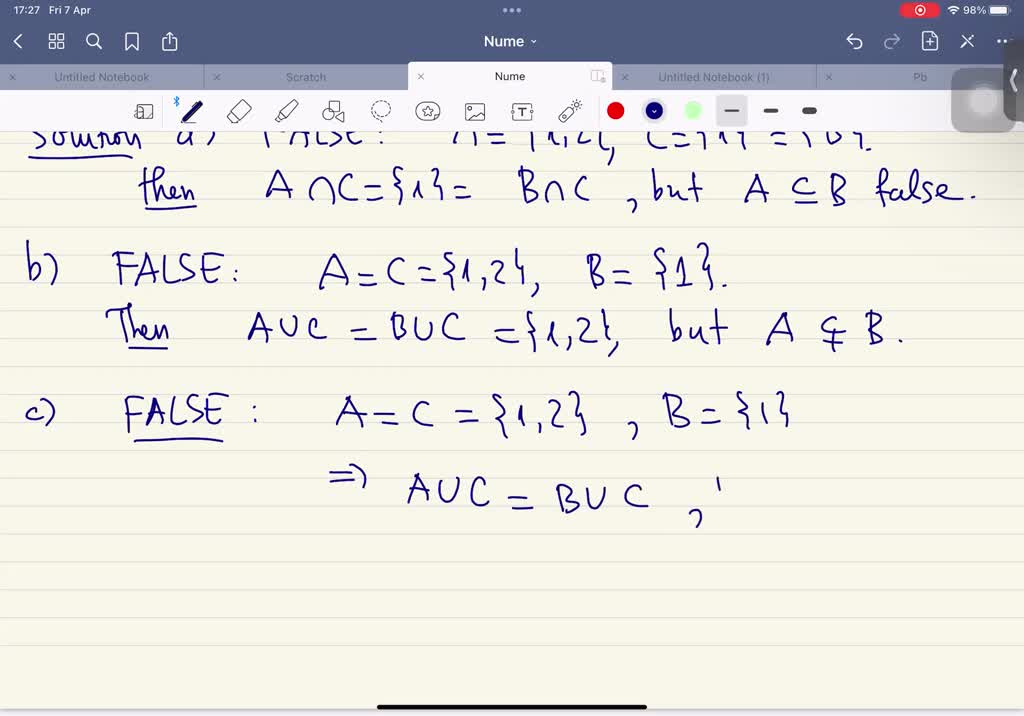 17:27 Fri 7 Apr
98%
Nume
Untitled Notebook
Scratch
Nume
Untitled Notebook (1)
Pb
Solution a) FALSE: A = {1,2},
then A ∩ C = {1} = B ∩ C , but A ⊆ B false.
b) FALSE: A = C = {1,2}, B = {1}.
Then A ∪ C = B ∪ C = {1,2}, but A ⊈ B.
c) FALSE : A = C = {1,2} , B = {1}
⇒ A ∪ C = B ∪ C ,